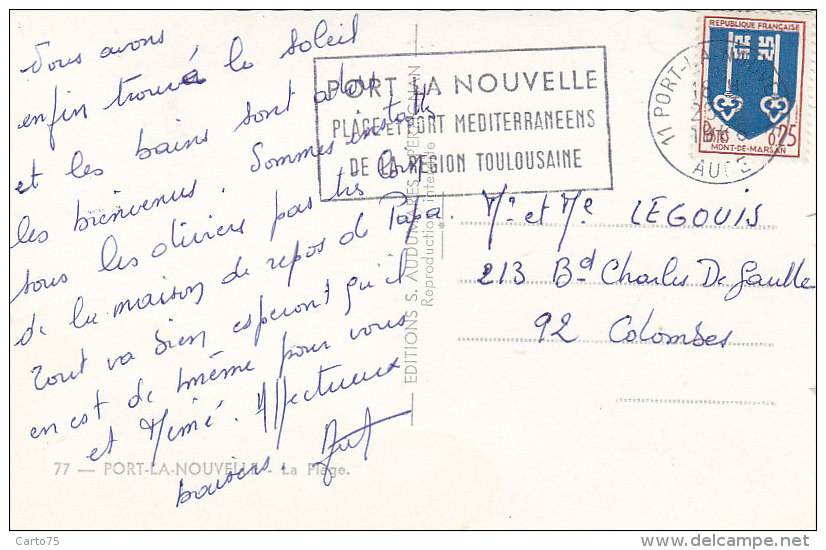 Nous avons
enfin trouvé le soleil
et les bains sont alors
les bienvenus. Sommes installés
sous les oliviers pas très loin
de la maison de repos de Papa.
Tout va bien esperont qu'il
en est de même pour vous
et Mémé. Affectueux
baisers.
77 — PORT-LA-NOUVELLE - La Plage.
EDITIONS S. AUDUMARES PERPIGNAN
Reproduction interdite
PORT LA NOUVELLE
PLAGE ET PORT MEDITERRANEENS
DE LA REGION TOULOUSAINE
11 PORT-LA-NOUVELLE
AUDE
REPUBLIQUE FRANÇAISE
POSTES 0,25
MONT-DE-MARSAN
Mr et Me LEGOUIS
213 Bd Charles De Gaulle
92 Colombes
Carto75
www.delcampe.net